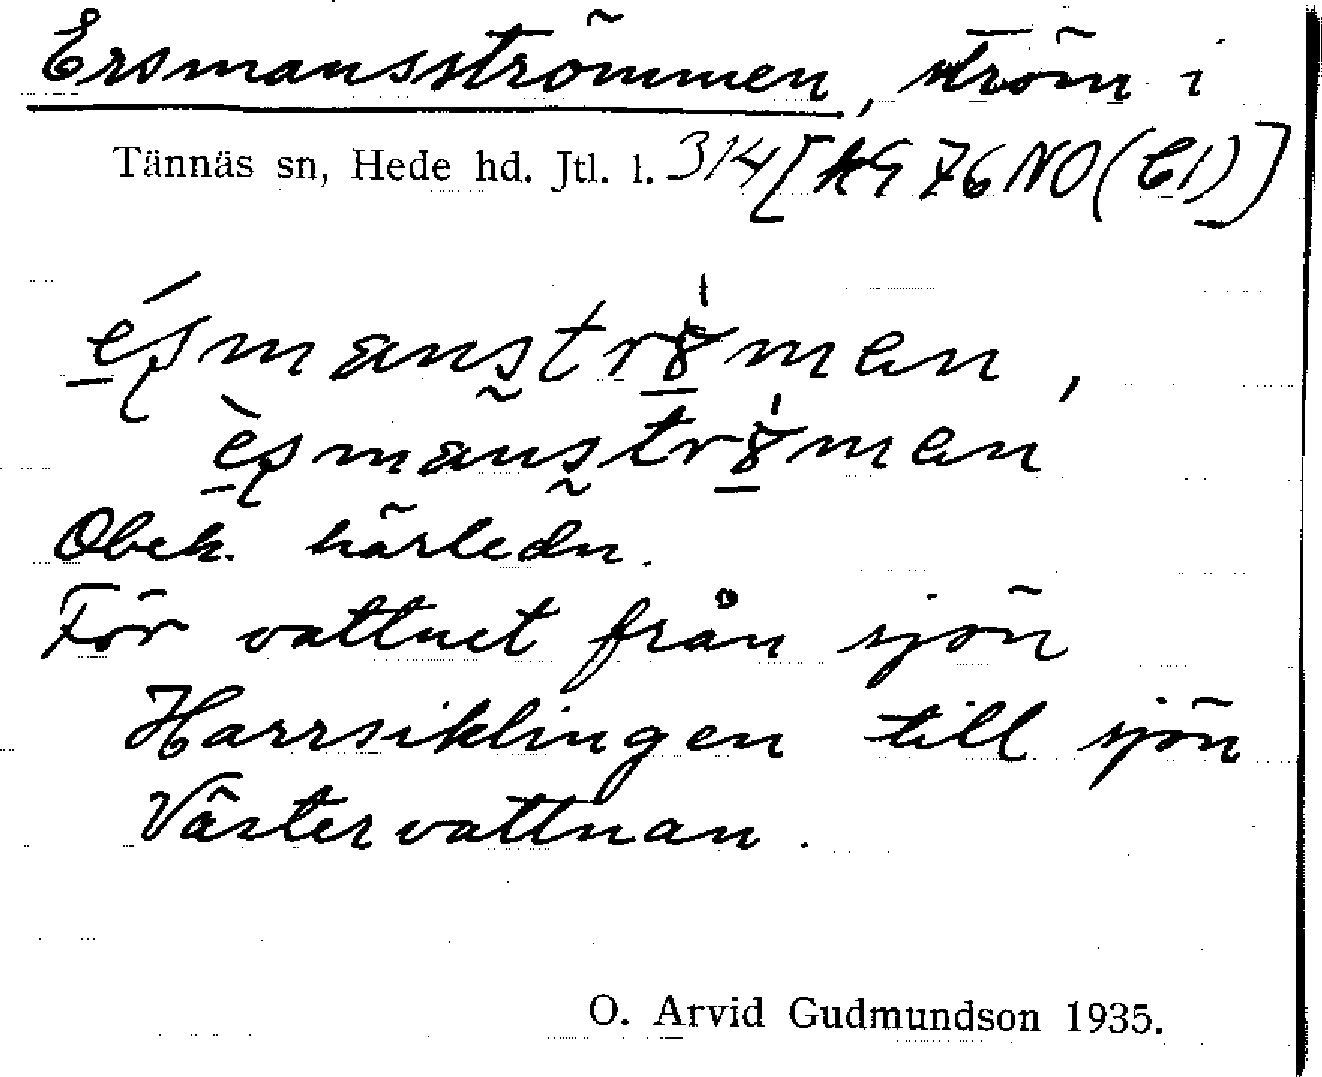 Ersmansströmmen, ström i
Tännäs sn, Hede hd. Jtl. l. 3/4 [kG 76 NO (C1)]
Obek. härledn.
För vattnet från sjön
Harrsiklingen till sjön
Västervattnan.
O. Arvid Gudmundson 1935.